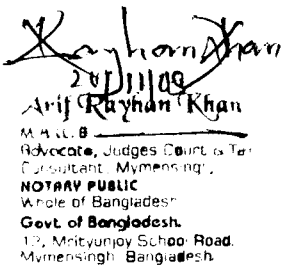 Rayhan Khan
Arif Rayhan Khan
Advocate, Judges Court & Tax
Consultant, Mymensingh,
NOTARY PUBLIC
Whole of Bangladesh
Govt. of Bangladesh.
Mrityunjoy School Road.
Mymensingh Bangladesh